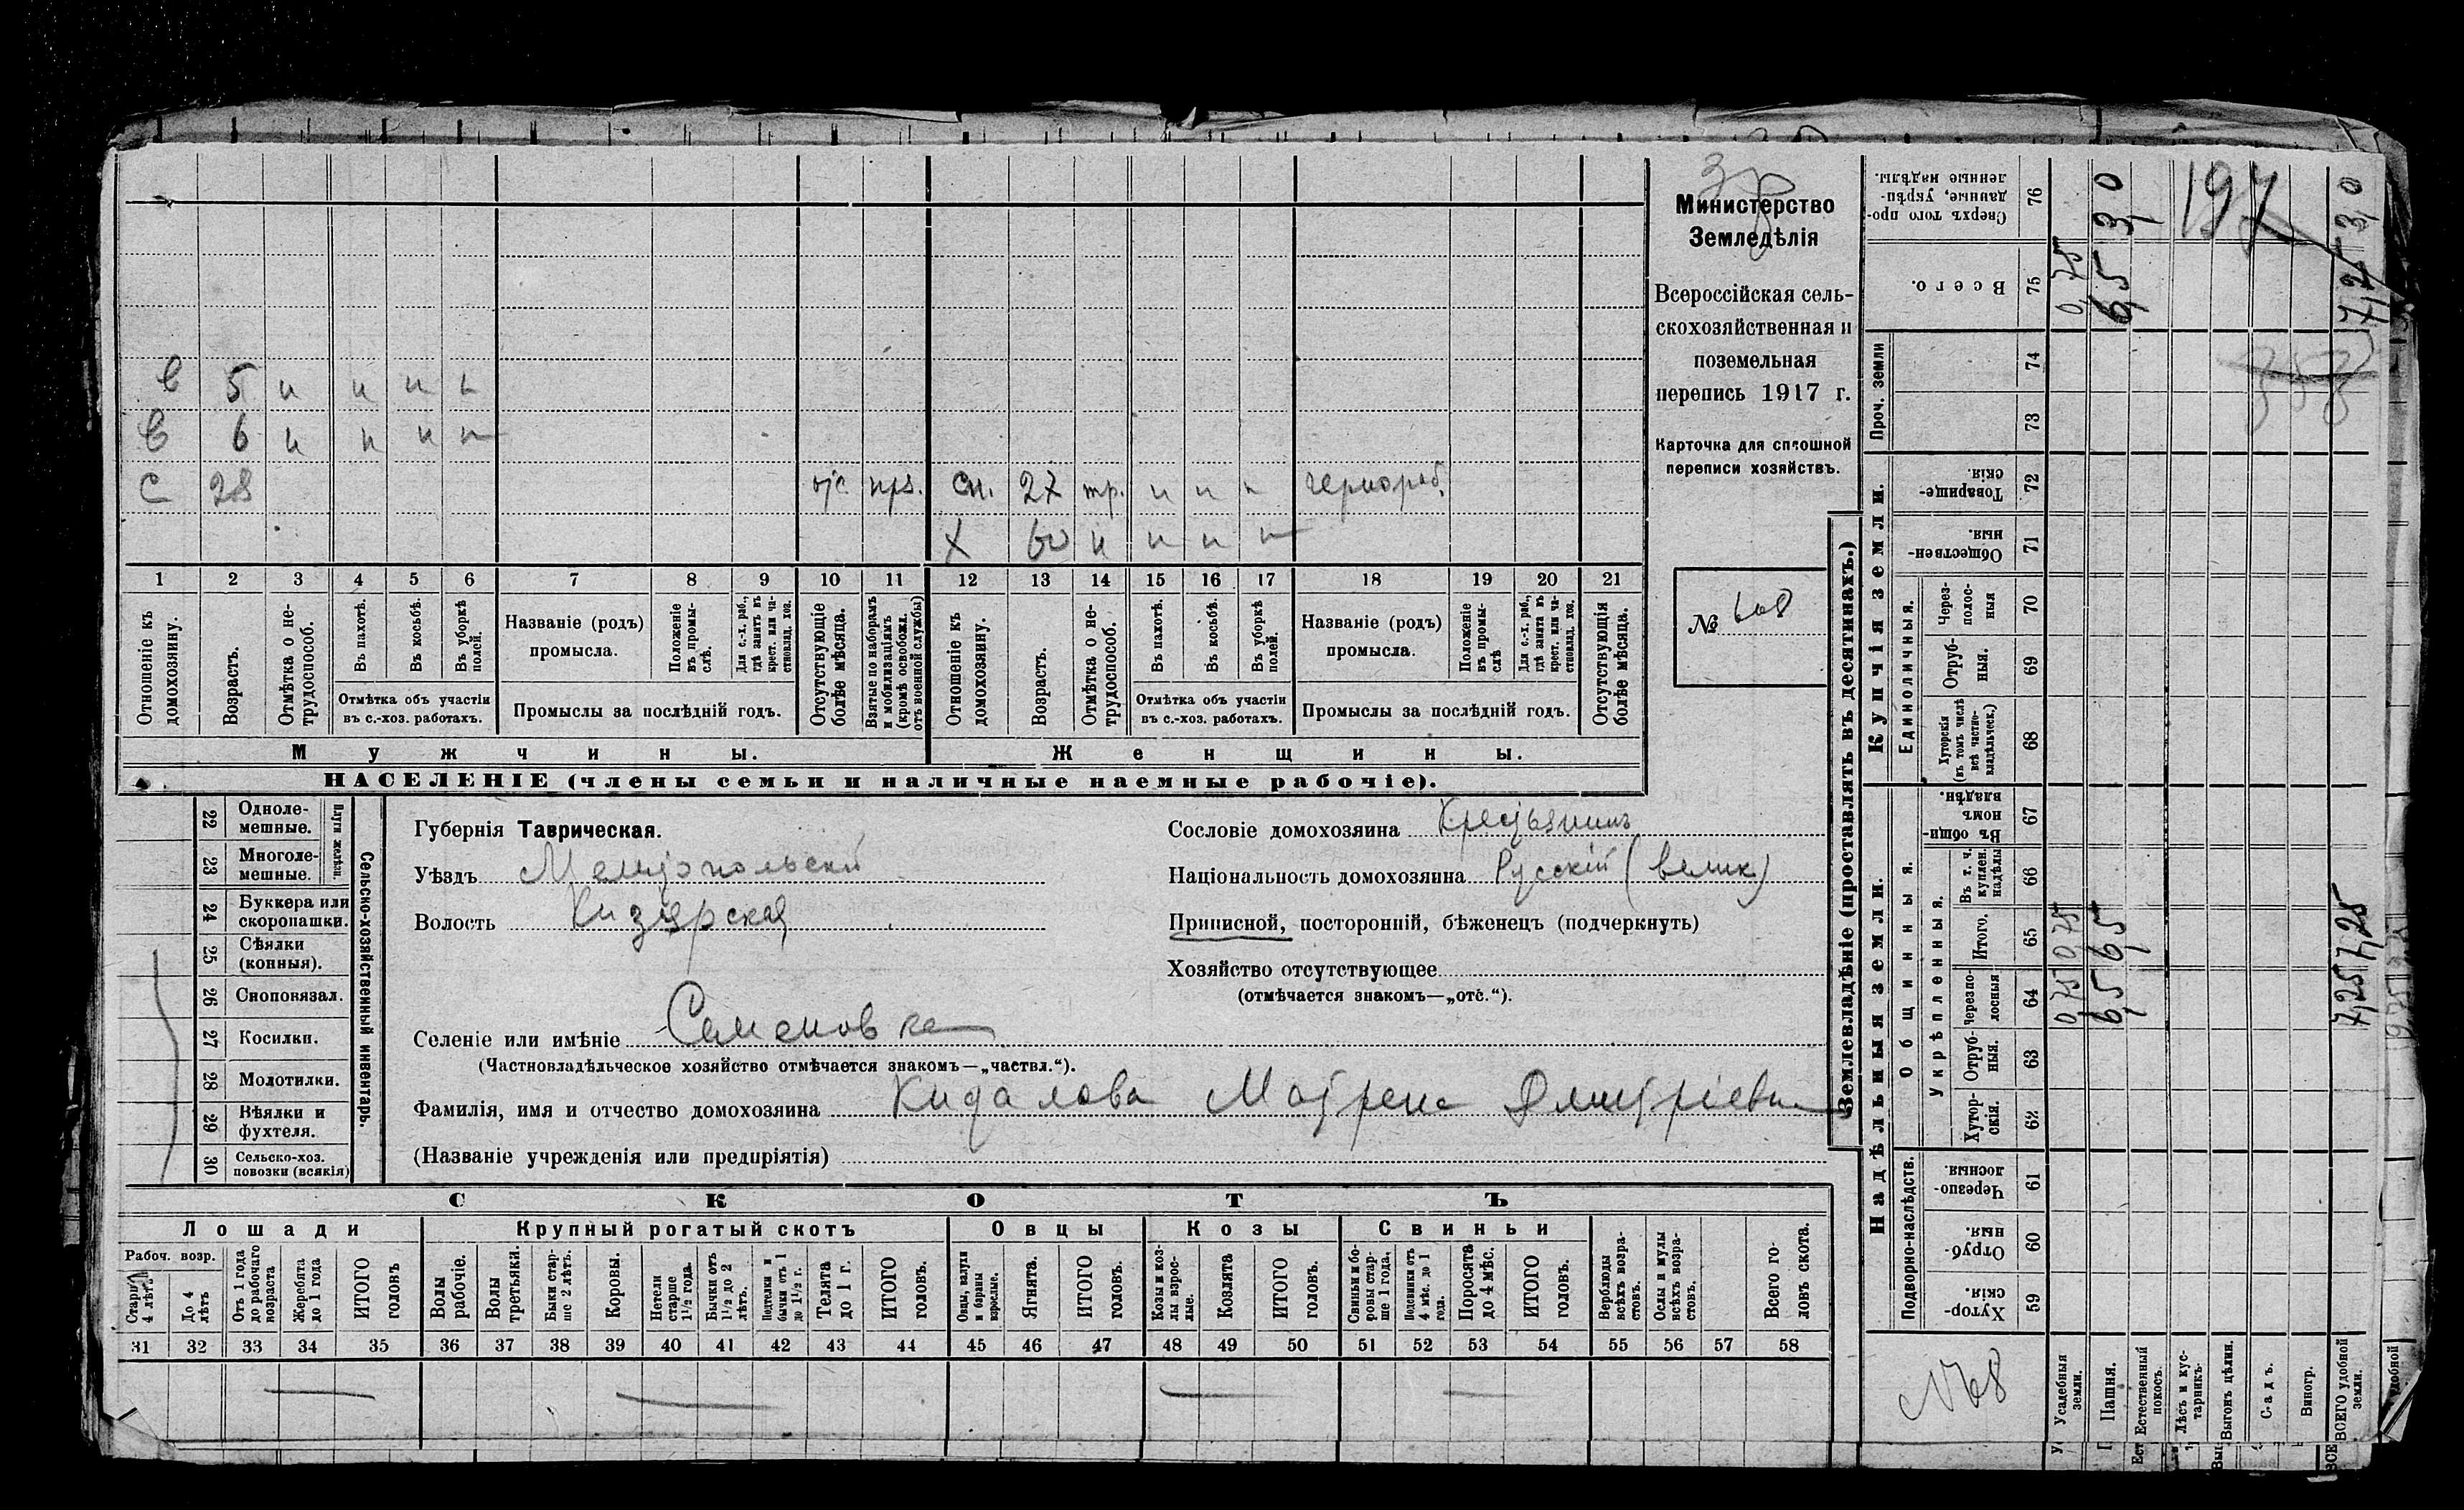 С 5 н н н н
С 6 н н н н
С 28 в/с прз. сн. 27 тр. н н н чернораб.
Х 60 н н н н
1 2 3 4 5 6 7 8 9 10 11 12 13 14 15 16 17 18 19 20 21
Отношеніе къ домохозяину.
Возрастъ.
Отмѣтка о нетрудоспособ.
Въ пахотѣ.
Въ косьбѣ.
Въ уборкѣ полей.
Отмѣтка объ участіи
въ с.-хоз. работахъ.
Названіе (родъ)
промысла.
Положеніе въ промыслѣ.
Для с.-х. раб., гдѣ занятъ въ крест. или частновлад. хоз.
Промыслы за послѣдній годъ.
Отсутствующіе болѣе мѣсяца.
Взятые по наборамъ и мобилизаціямъ (кромѣ освобожд. отъ военной службы)
Отношеніе къ домохозяину.
Возрастъ.
Отмѣтка о нетрудоспособ.
Въ пахотѣ.
Въ косьбѣ.
Въ уборкѣ полей.
Отмѣтка объ участіи
въ с.-хоз. работахъ.
Названіе (родъ)
промысла.
Положеніе въ промыслѣ
Для с.-х. раб., гдѣ занята въ крест. или частновлад. хоз.
Промыслы за послѣдній годъ.
Отсутствующія болѣе мѣсяца.
Мужчины. Женщины.
НАСЕЛЕНІЕ (члены семьи и наличные наемные рабочіе).
Министерство
Земледѣлія
Всероссійская сель-
скохозяйственная и
поземельная
перепись 1917 г.
Карточка для сплошной
переписи хозяйствъ.
№ 608
22 Одноле-
мешные.
23 Многоле-
мешные.
Плуги желѣзн.
24 Буккера или
скоропашки.
25 Сѣялки
(конныя).
26 Сноповязал.
27 Косилки.
28 Молотилки.
29 Вѣялки и
фухтеля.
30 Сельско-хоз.
повозки (всякія)
Сельско-хозяйственный инвентарь.
Губернія Таврическая.
Уѣздъ Мелитопольскій
Волость Кизярская
Сословіе домохозяина Крестьянинъ
Національность домохозяина Русскій (велик.)
Приписной, посторонній, бѣженец (подчеркнуть)
Хозяйство отсутствующее
(отмѣчается знакомъ—„отс.“).
Селеніе или имѣніе Семеновка
(Частновладѣльческое хозяйство отмѣчается знакомъ—„частвл.“).
Фамилія, имя и отчество домохозяина Кидалова Матрена Дмитріевна
(Названіе учрежденія или предпріятія)
СКОТЪ
Лошади Крупный рогатый скотъ Овцы Козы Свиньи
Рабоч. возр.
Старш. 4 лѣтъ
До 4 лѣтъ
Отъ 1 года до рабочаго возраста
Жеребята до 1 года
ИТОГО головъ
Волы рабочіе.
Волы третьяки.
Быки старше 2 лѣтъ.
Коровы.
Нетели старше 1½ года.
Бычки отъ 1½ до 2 лѣтъ.
Подтелки и бычки отъ 1 до 1½ г.
Телята до 1 г.
ИТОГО головъ.
Овцы, валухи и бараны взрослые.
Ягнята.
ИТОГО головъ.
Козы и козлы взрослые.
Козлята
ИТОГО головъ.
Свиньи и боровы старше 1 года.
Подсвинки отъ 4 мѣс. до 1 года.
Поросята до 4 мѣс.
ИТОГО головъ.
Верблюды всѣхъ возрастовъ.
Ослы и мулы всѣхъ возрастовъ.
Всего головъ скота.
31 32 33 34 35 36 37 38 39 40 41 42 43 44 45 46 47 48 49 50 51 52 53 54 55 56 57 58
Землевладѣніе (проставлять въ десятинахъ.)
Сверхъ того проданные, укрѣпленные надѣлы. 76 3,0 3,0
197
Всего. 75 0,75 6,5 7,25
Проч. земли
74
73
Купчія земли.
Товарищескія. 72
Общественныя 71
Единоличныя.
Черезполосныя 70
Отрубныя. 69
Хуторскія (въ томъ числѣ всѣ частновладѣльческ.) 68
Надѣльныя земли.
Общинныя.
Въ общинномъ владѣн. 67
Укрѣпленныя.
Въ т. ч. куплен. надѣлы 66
Итого. 65 0,75 6,5 7,25
Черезполосныя 64 0,75 6,5 7,25
Отрубныя. 63
Хуторскія. 62
Подворно-наслѣдств.
Черезполосныя. 61
Отрубныя. 60
Хуторскія. 59
№ 68
Усадебныя земли.
Пашня.
Естественный покосъ.
Лѣсъ и кустарникъ.
Выгонъ цѣлин.
Садъ.
Виногр.
ВСЕГО удобной земли.